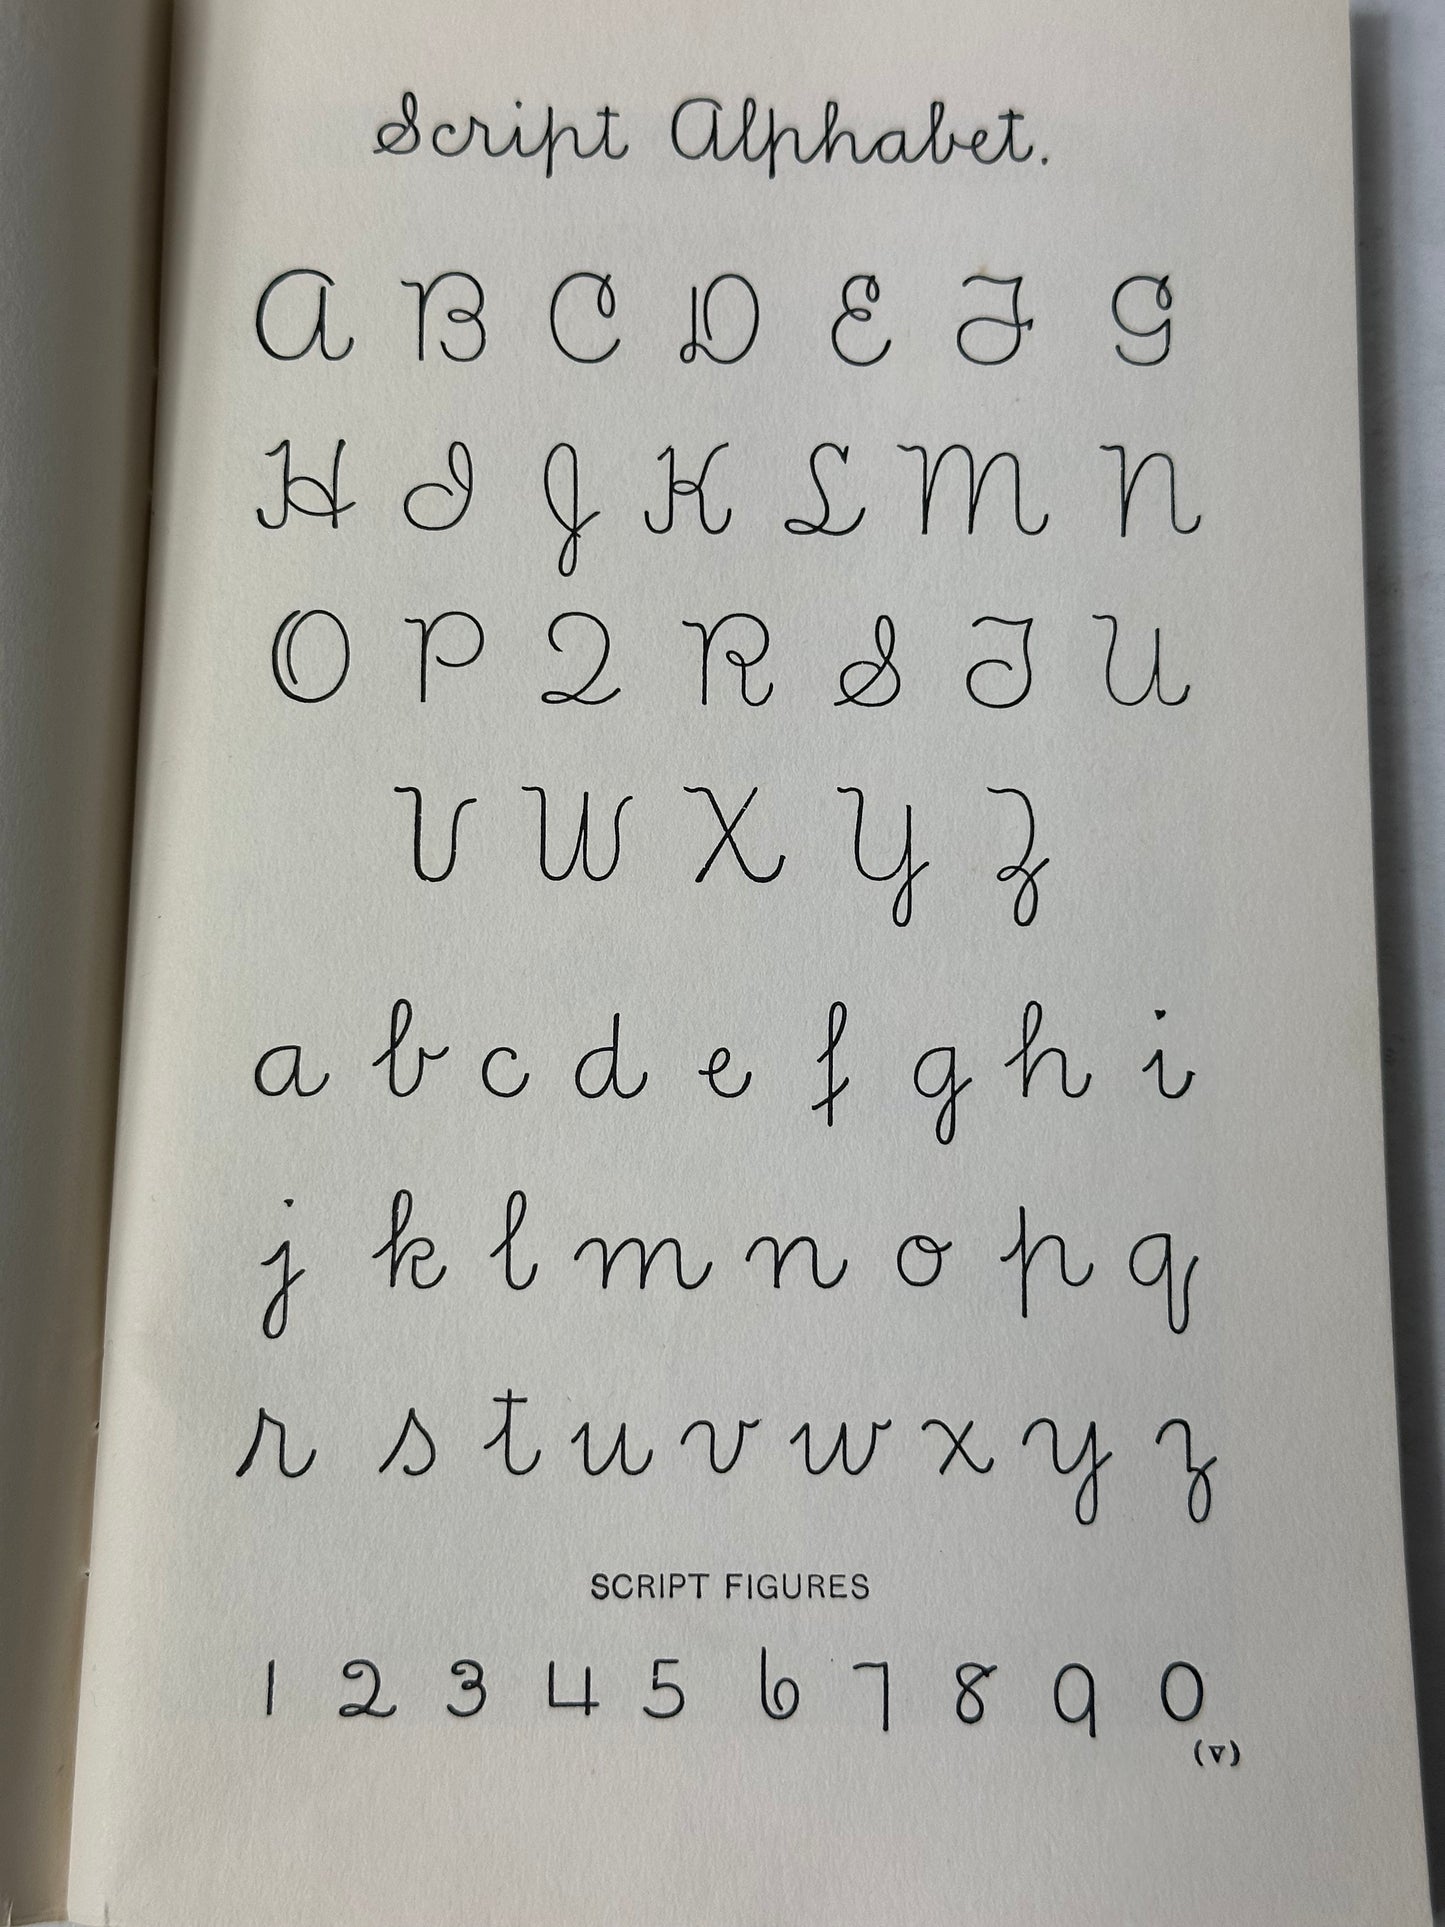 Script Alphabet.
A B C D E F G
H I J K L M N
O P Q R S T U
V W X Y Z
a b c d e f g h i
j k l m n o p q
r s t u v w x y z
SCRIPT FIGURES
1 2 3 4 5 6 7 8 9 0
(v)